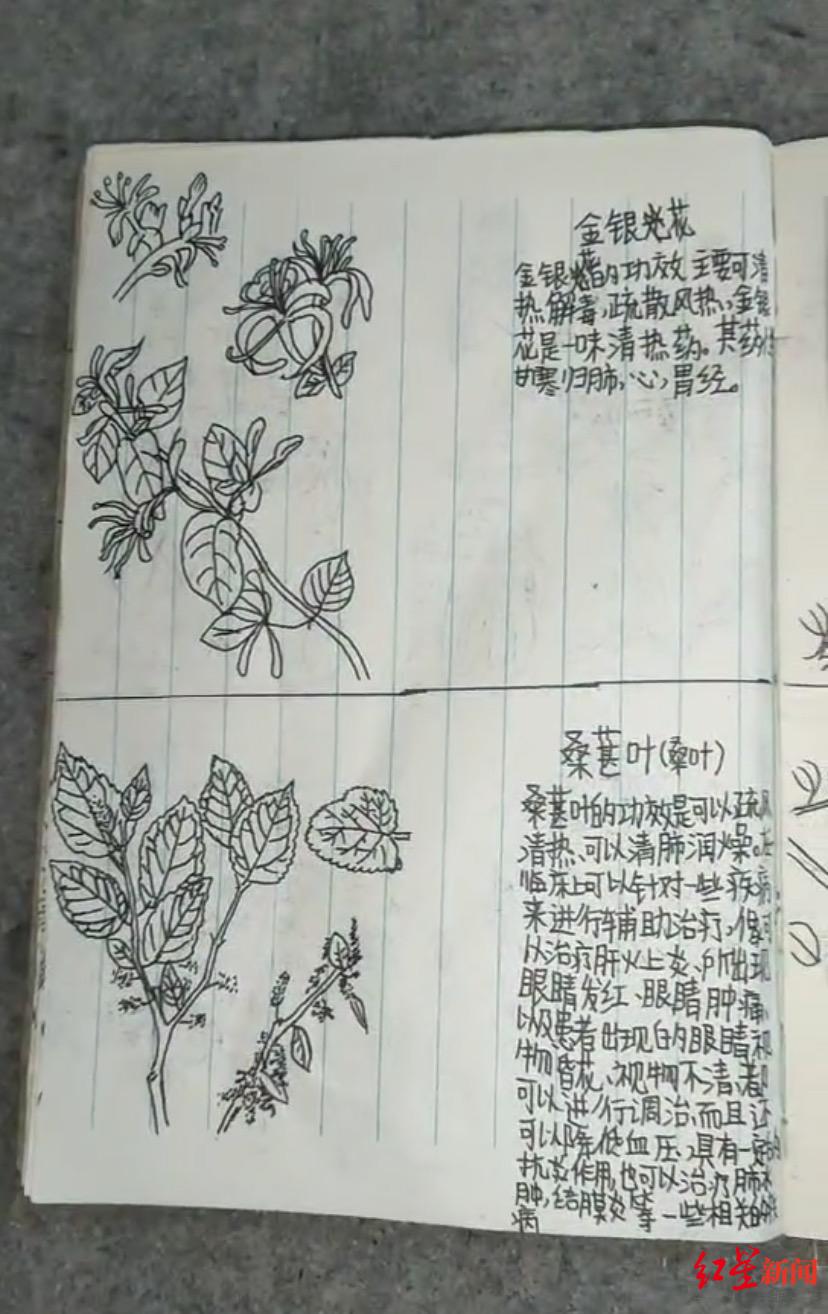 金银花
金银花的功效主要可清
热解毒,疏散风热,金银
花是一味清热药。其药性
甘寒归肺,心,胃经。
桑葚叶(桑叶)
桑葚叶的功效是可以疏风
清热、可以清肺润燥。在
临床上可以针对一些疾病
来进行辅助治疗,像可
以治疗肝火上炎、所出现
眼睛发红、眼睛肿痛,
以及患者出现的眼睛视
物昏花、视物不清,都
可以进行调治,而且还
可以降低血压、具有一定的
抗炎作用,也可以治疗肺水
肿,结膜炎等一些相关的
病
红星新闻